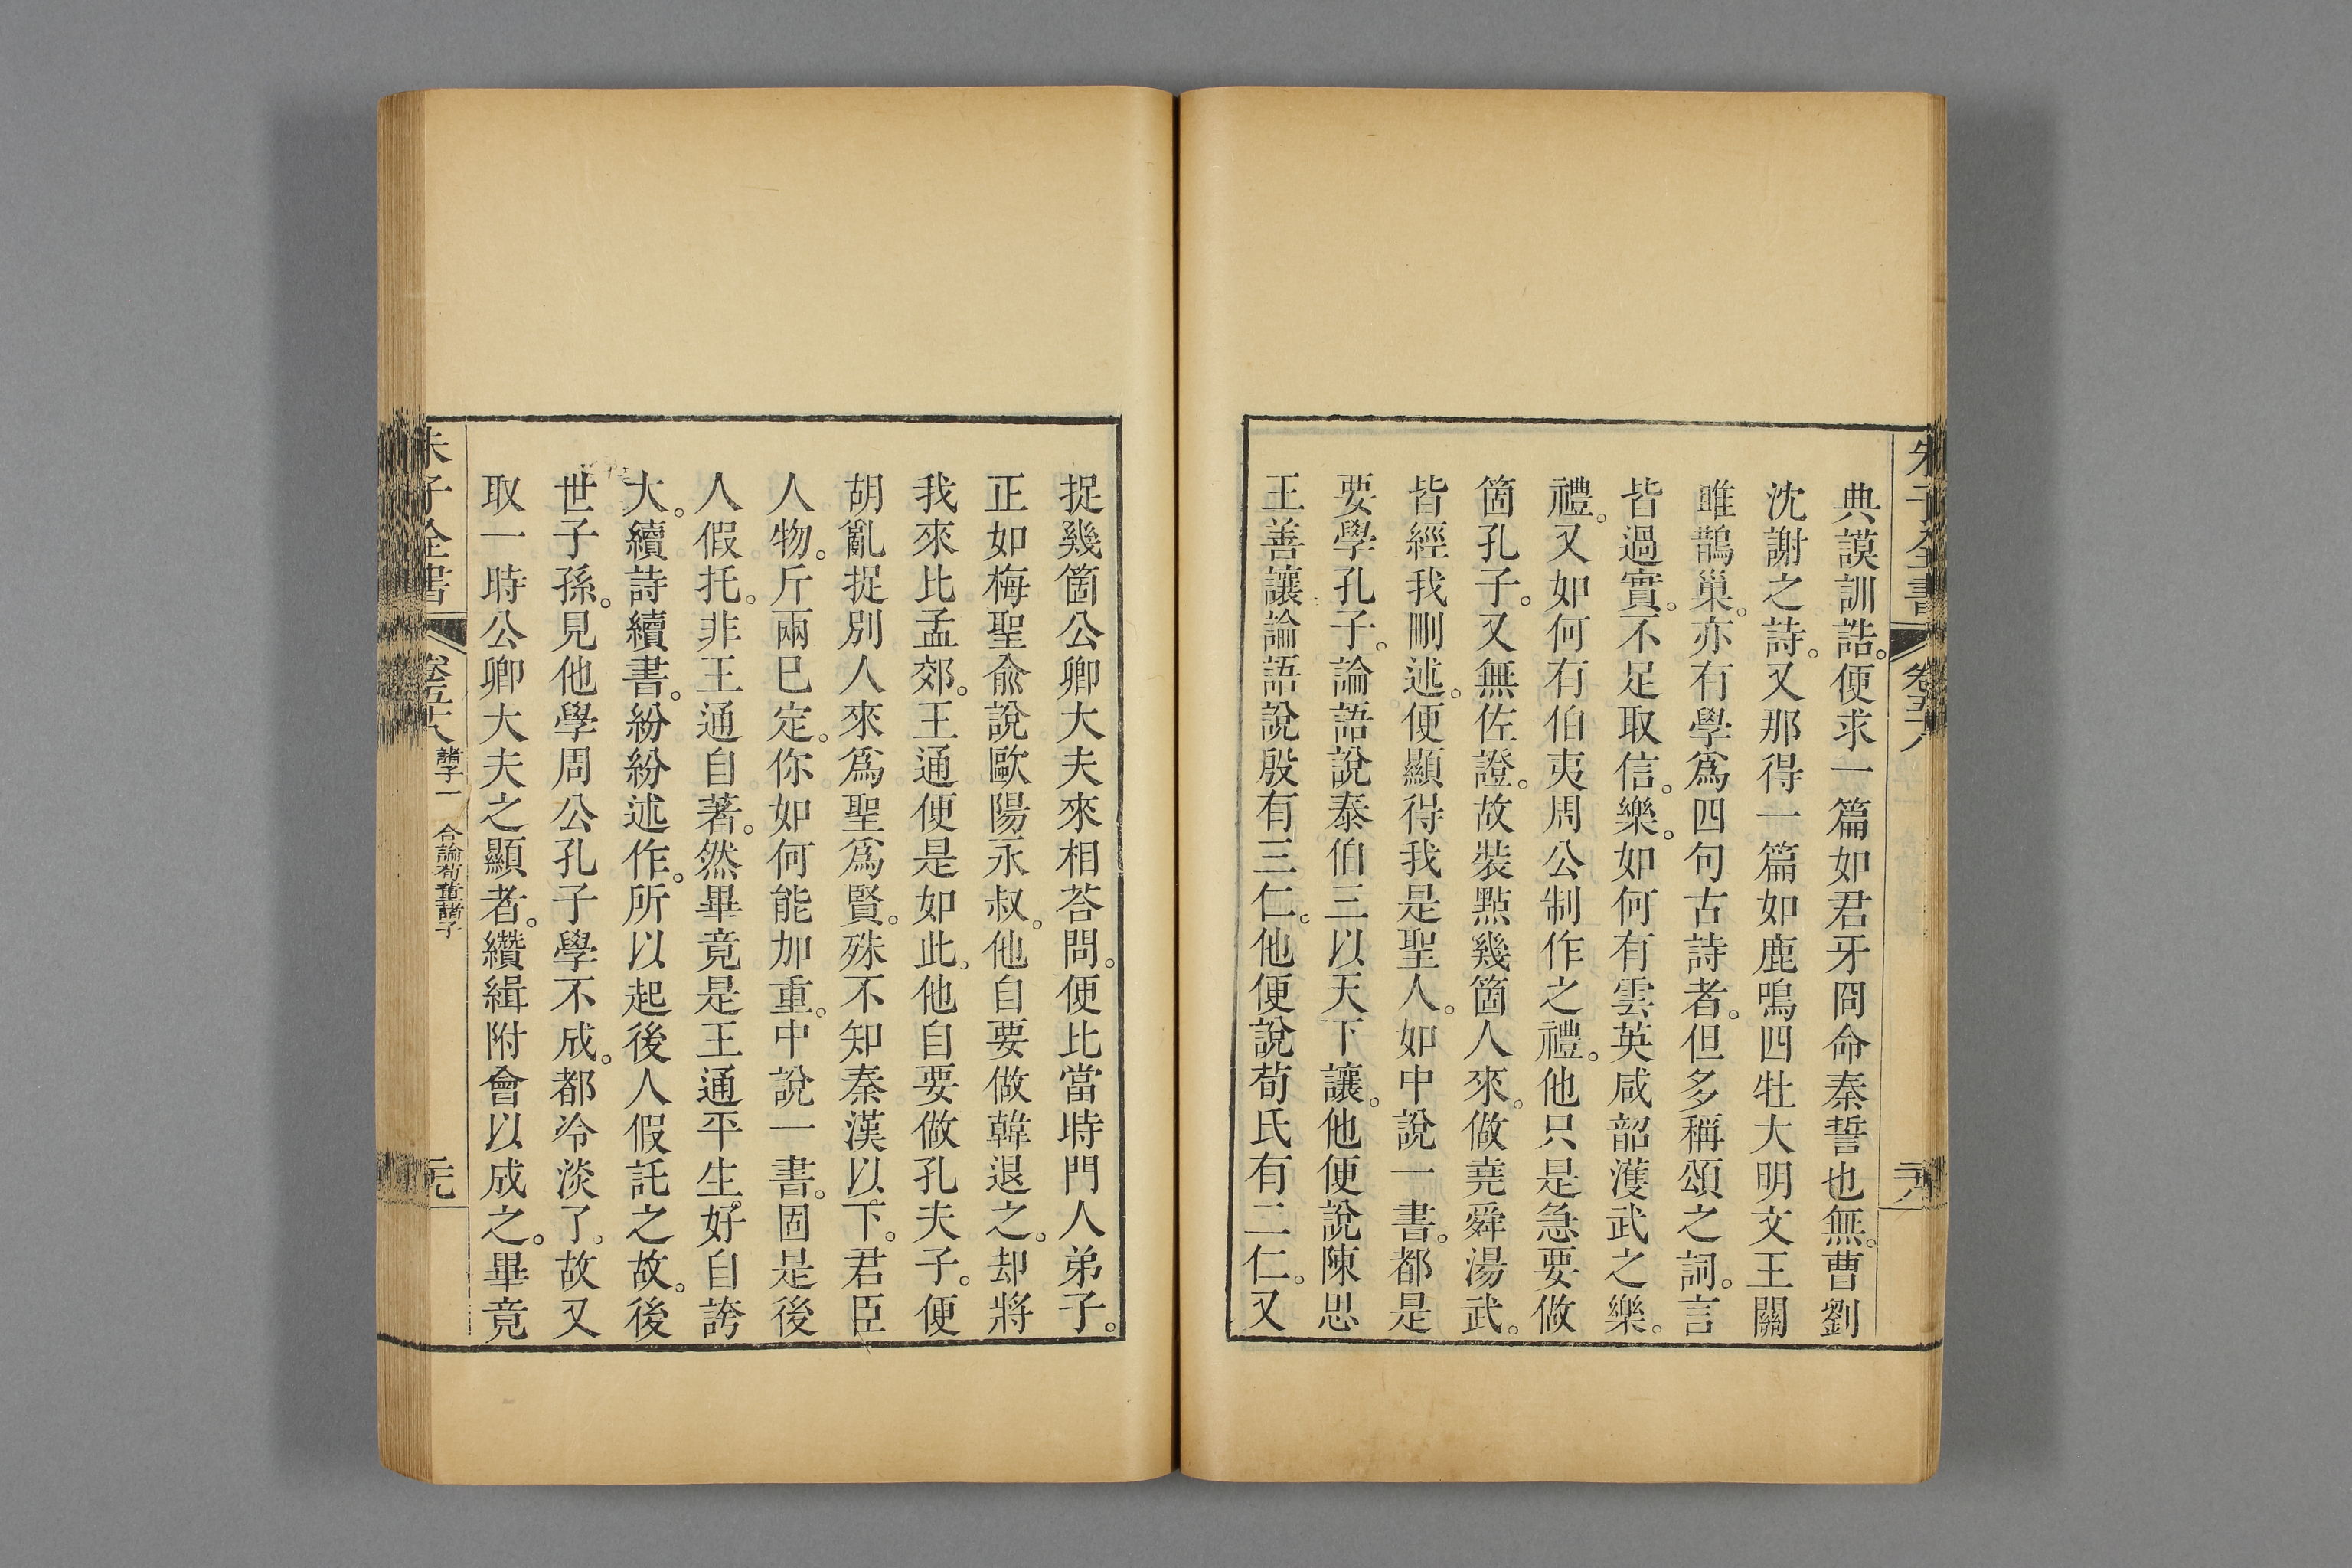 朱子全書 卷五十八 二十八
典謨訓誥。便求一篇如君牙冏命秦誓也無。曹劉
沈謝之詩。又那得一篇如鹿鳴四牡大明文王關
雎鵲巢。亦有學爲四句古詩者。但多稱頌之詞。言
皆過實。不足取信。樂。如何有雲英咸韶濩武之樂。
禮。又如何有伯夷周公制作之禮。他只是急要做
箇孔子。又無佐證。故裝點幾箇人來。做堯舜湯武。
皆經我刪述。便顯得我是聖人。如中說一書。都是
要學孔子。論語說泰伯三以天下讓。他便說陳思
王善讓論語說殷有三仁。他便說荀氏有二仁。又
捉幾箇公卿大夫來相荅問。便比當時門人弟子。
正如梅聖兪說歐陽永叔。他自要做韓退之。却將
我來比孟郊。王通便是如此。他自要做孔夫子。便
胡亂捉別人來爲聖爲賢。殊不知秦漢以下。君臣
人物。斤兩已定。你如何能加重。中說一書。固是後
人假托。非王通自著。然畢竟是王通平生。好自誇
大。續詩續書。紛紛述作。所以起後人假託之故。後
世子孫。見他學周公孔子學不成。都冷淡了。故又
取一時公卿大夫之顯者。纘緝附會以成之。畢竟
朱子全書 卷五十八 諸子一 合論荀董諸子 二十九